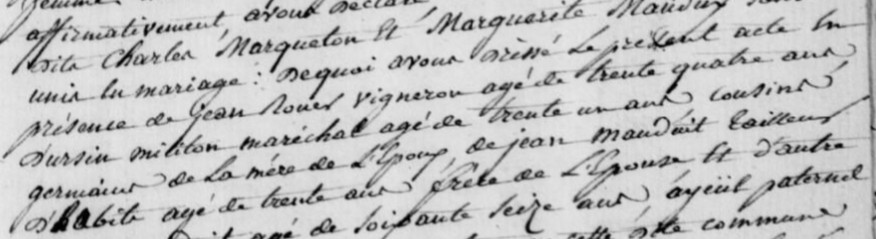 affirmativement avons déclaré
dits Charles Marqueton Et Marguerite Mauduit sont
unis En mariage : Dequoi avons Dressé Le présent acte En
présence de Jean Rouer vigneron agé de trente quatre ans
Dursin militon maréchal agé de trente un ans cousins
germains de La mére de L'Epoux, de jean mauduit tailleur
D'habits agé de trente ans frére de L'Epouse Et D'autre
agé de soixante seize ans ayeüil paternel
cette Dite commune